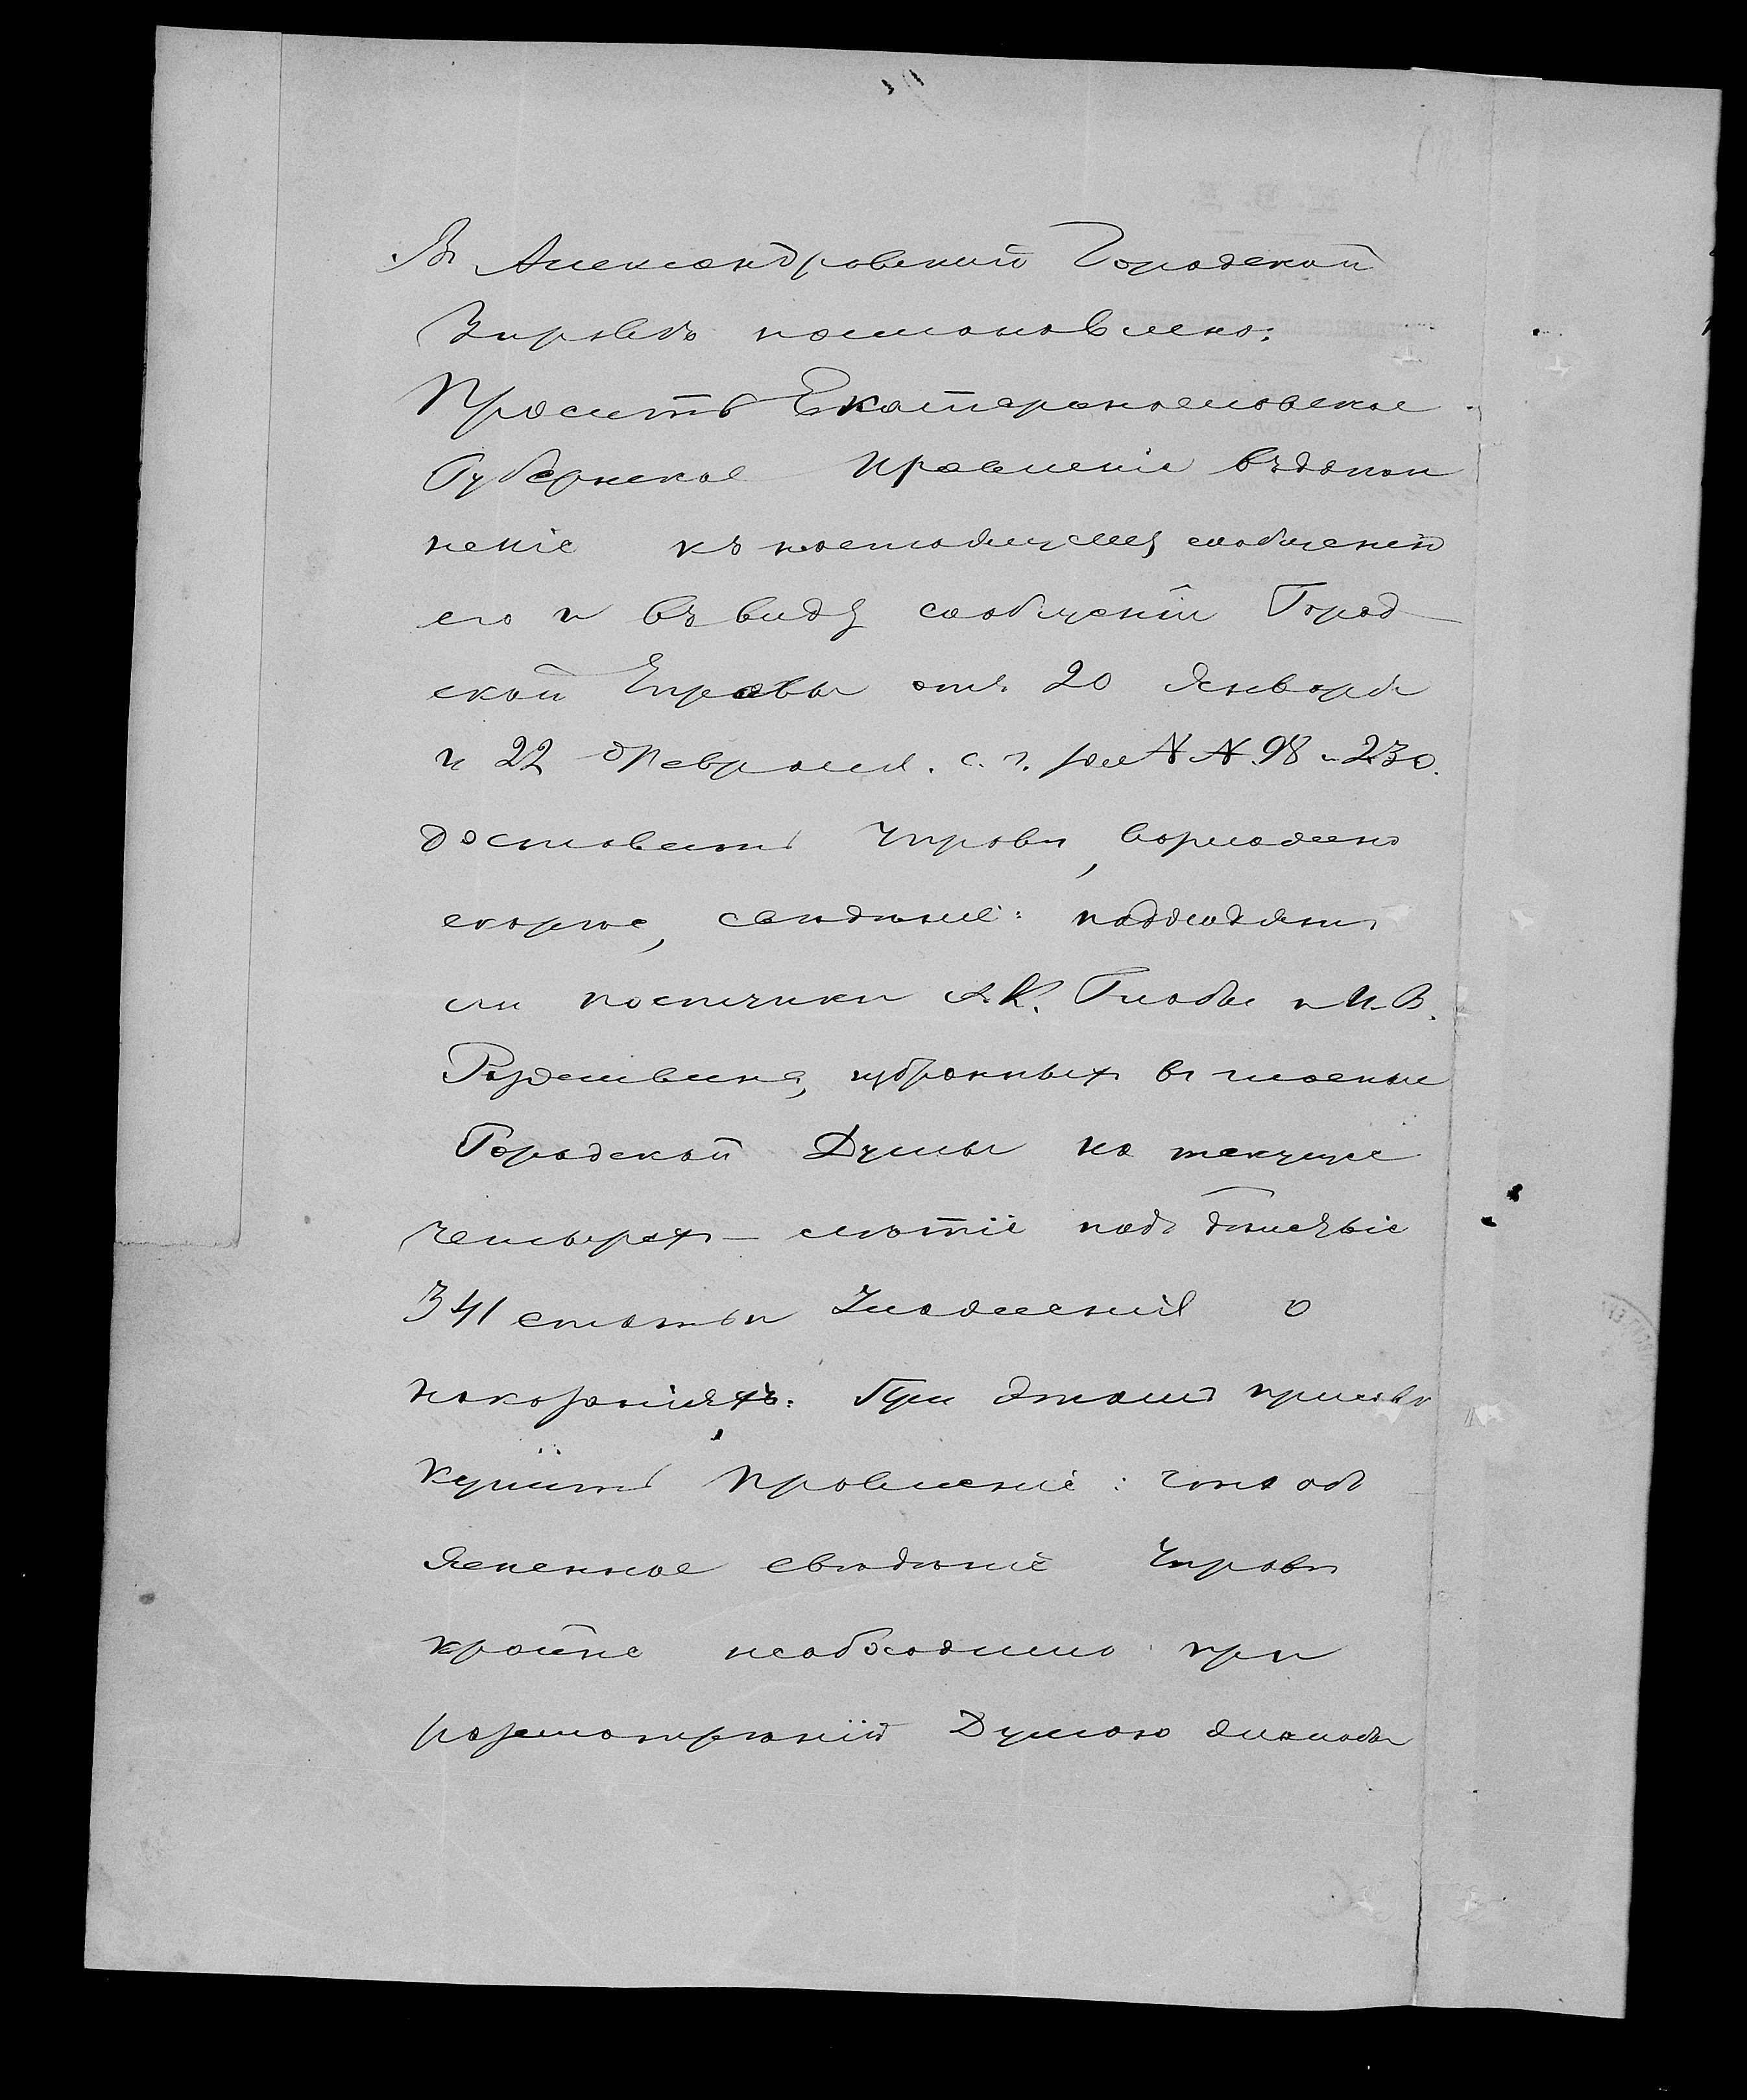 Въ Александровской Городской
Управѣ постановлено:
Просить Екатеринославское
Губернское Правленіе въ допол
неніе къ настоящему сообщенію
его и въ виду сообщеній Город
ской Управы отъ 20 Января
и 22 Февраля с. г. за N N 98 и 230.
доставить Управѣ, возможно
скорѣе, свѣдѣніе: подходятъ
ли поступки А. К. Глобы и И. В.
избранныхъ въ гласные
Городской Думы на текущее
четырехъ-лѣтіе подъ дѣйствіе
341 статьи Уложенія о
наказаніяхъ. При этомъ присово
купить Правленію: что объ
ясненное свѣдѣніе Управѣ
крайне необходимо при
разсмотрѣніи Думою